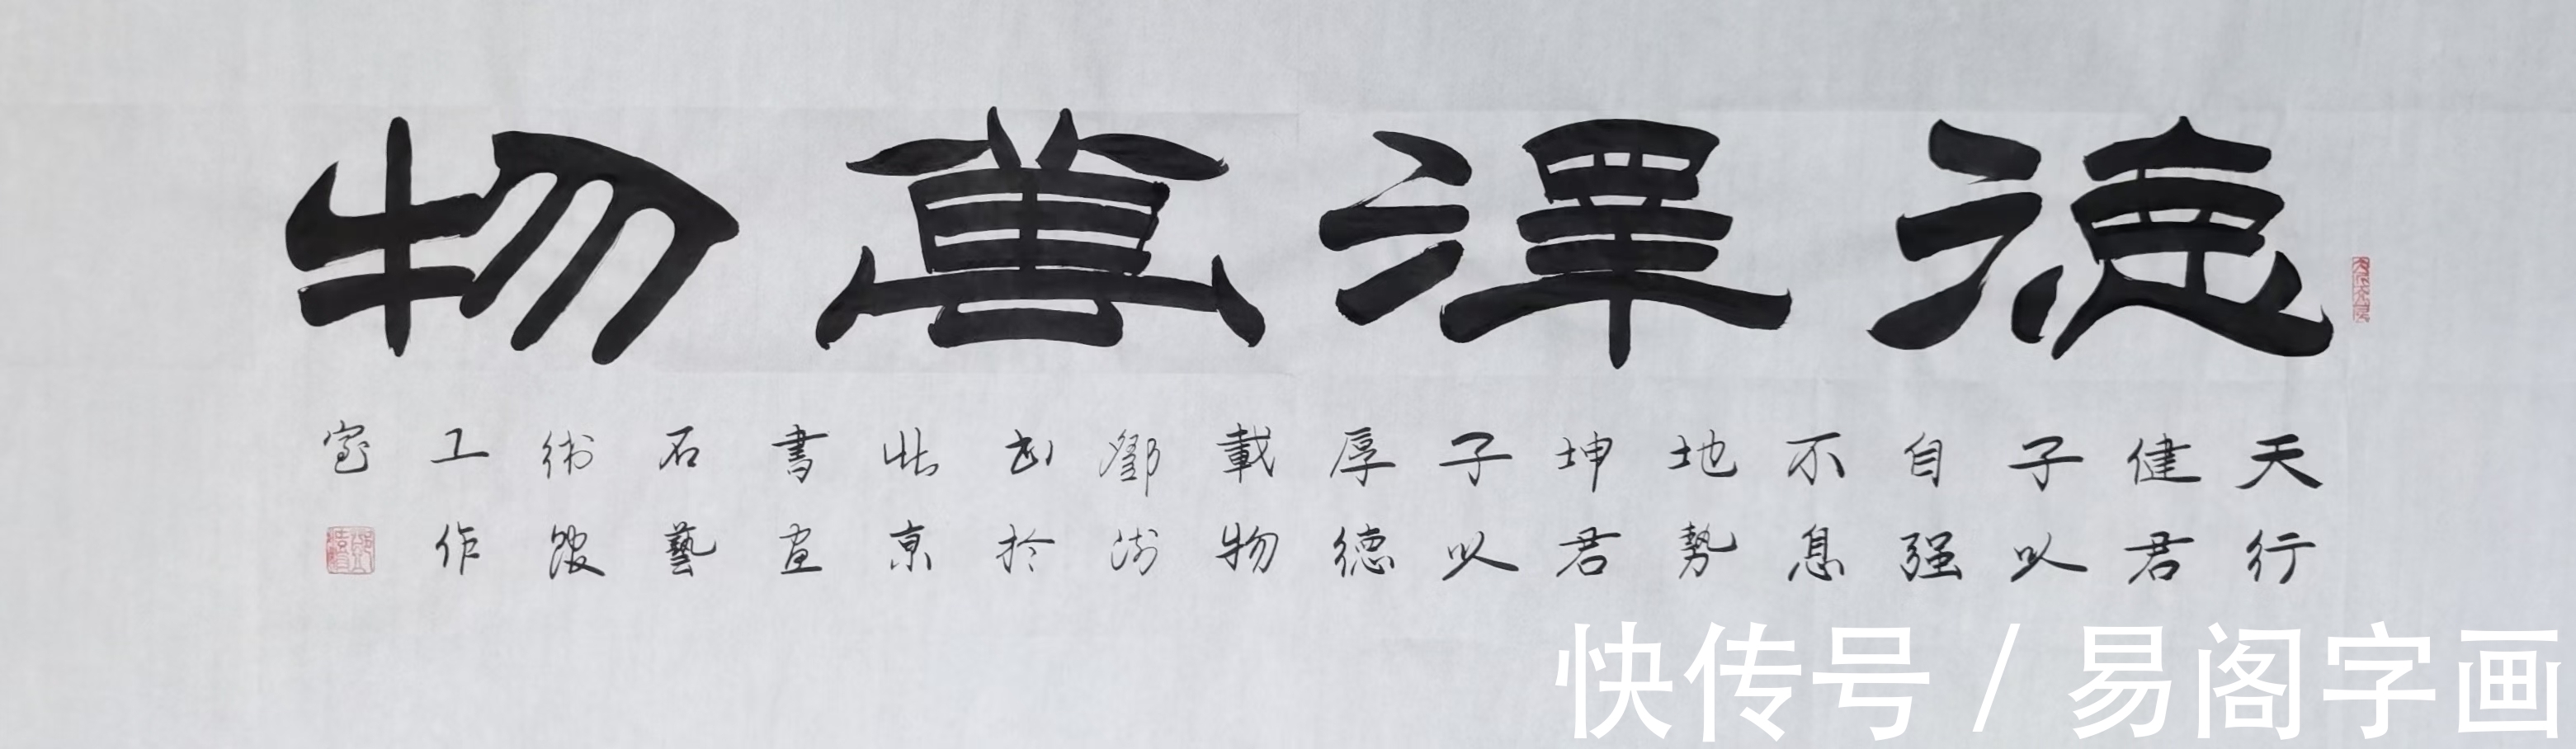 德澤善物
天行
健君
子以
自强
不息
地勢
坤君
子以
厚德
載物
鄧
书於
北京
書画
石藝
術館
工作
室
快传号 / 易阁字画